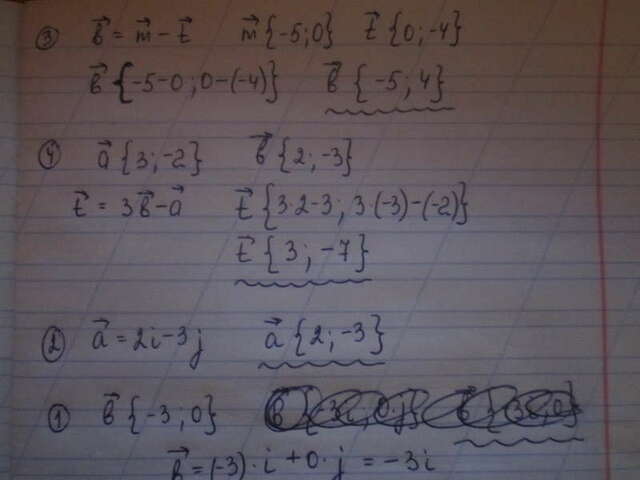 ③ b⃗ = m⃗ - t⃗ m⃗ {-5;0} t⃗ {0;-4}
b⃗ {-5-0; 0-(-4)} b⃗ {-5;4}
④ a⃗ {3;-2} b⃗ {2;-3}
t⃗ = 3b⃗-a⃗ t⃗ {3·2-3; 3·(-3)-(-2)}
t⃗ {3; -7}
② a⃗ = 2i-3j a⃗ {2;-3}
① b⃗ {-3;0}
b⃗ = (-3)·i + 0·j = -3i